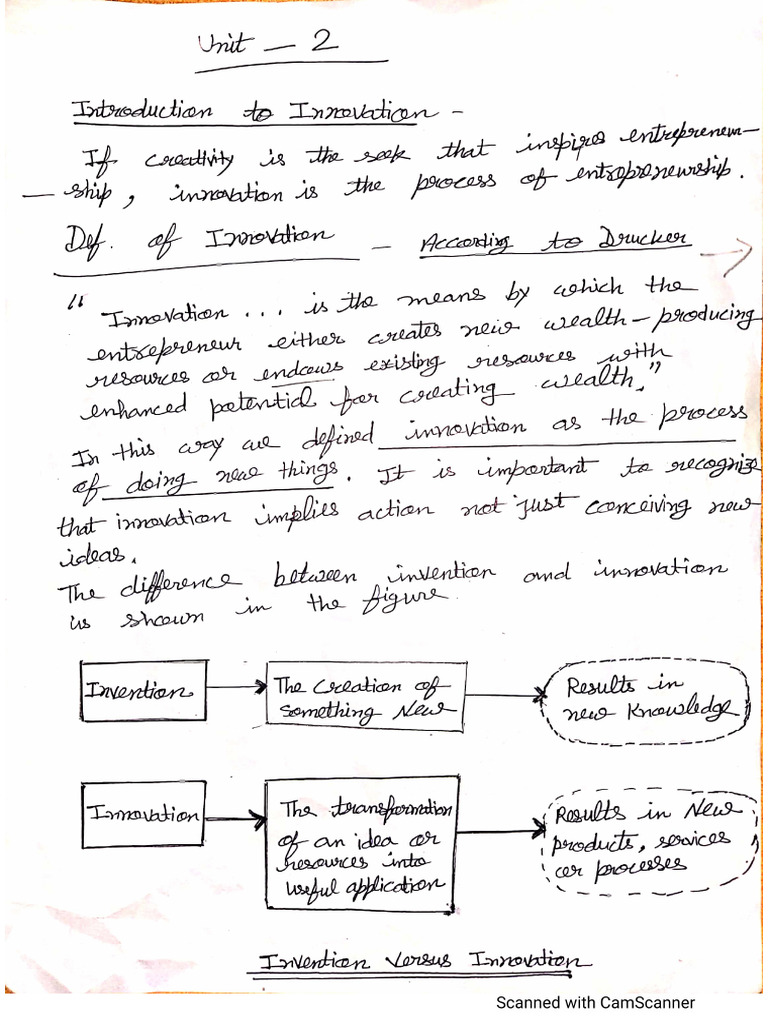 Unit - 2
Introduction to Innovation -
If creativity is the seek that inspires entrepreneur-
- ship, innovation is the process of entrepreneurship.
Def. of Innovation - According to Drucker
"Innovation ... is the means by which the
entrepreneur either creates new wealth-producing
resources or endows existing resources with
enhanced potential for creating wealth."
In this way we defined innovation as the process
of doing new things. It is important to recognize
that innovation implies action not just conceiving new
ideas.
The difference between invention and innovation
is shown in the figure.
Invention
The Creation of
Something New
Results in
new Knowledge
Innovation
The transformation
of an idea or
resources into
useful application
Results in New
products, services
or processes
Invention Versus Innovation
Scanned with CamScanner